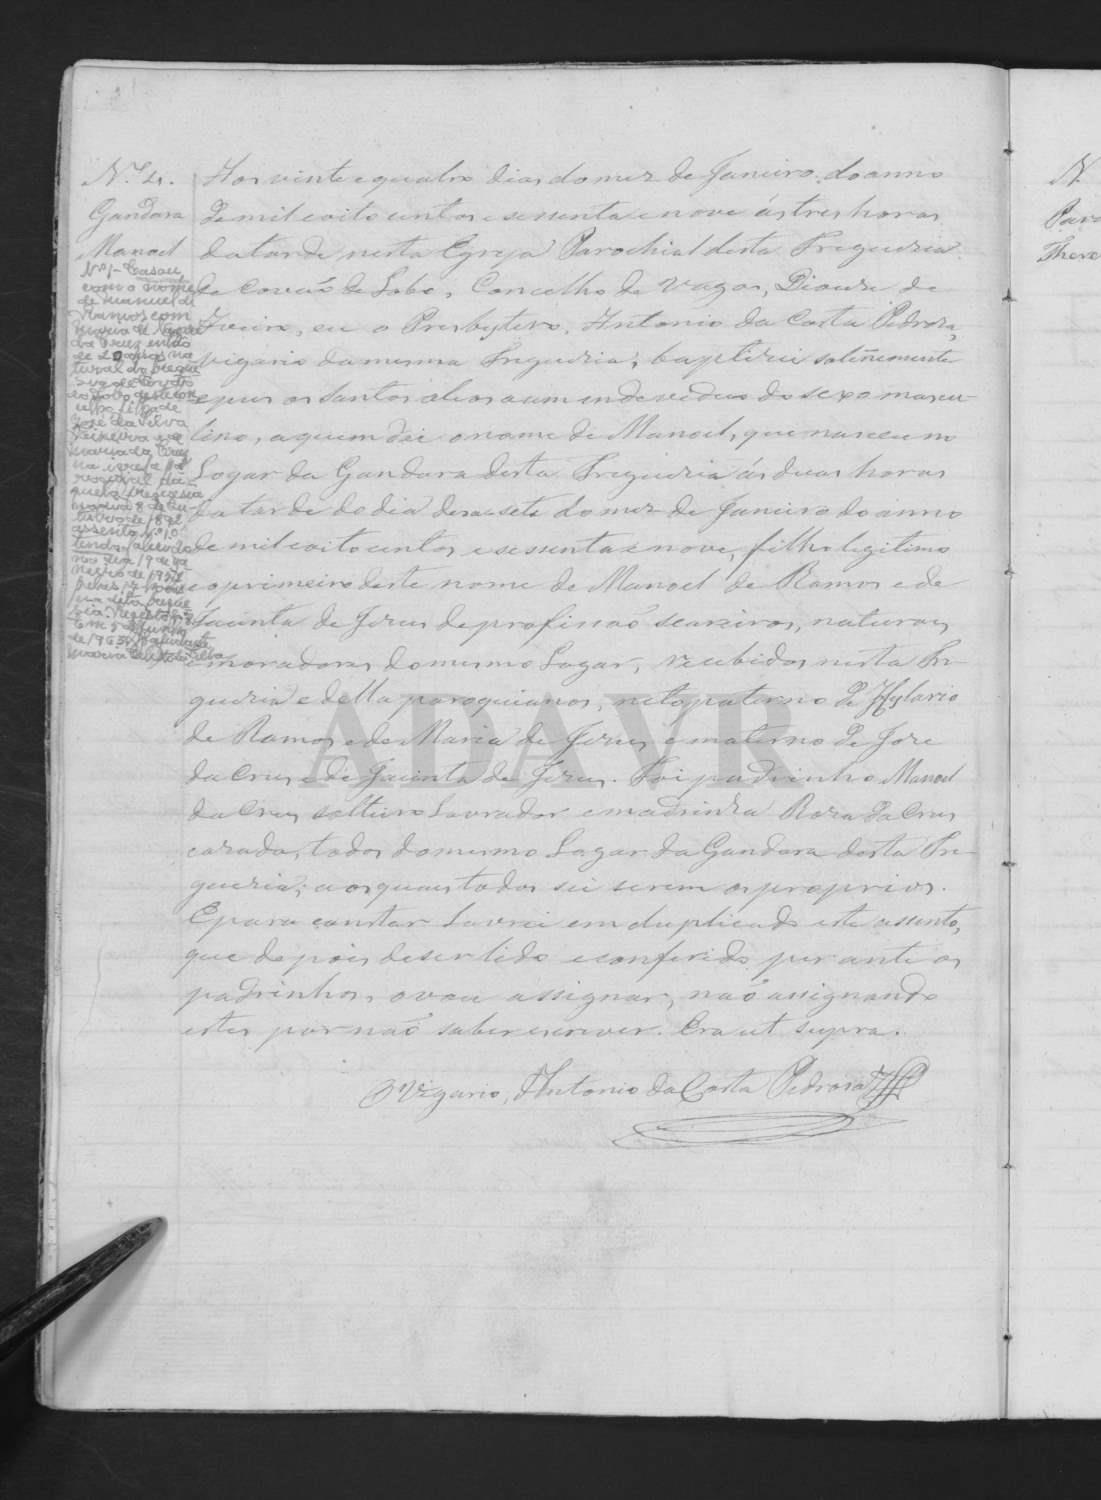 N.º 4.
Gandara
Manoel
Nº1- Casou
com o nome
de Manuel de
Ramos com
Maria de
da Cruz, então
de 20 anos na
tural da fregue
sia de Covão
do Lobo, deste con
celho, filha de
José da Silva
e de
Maria da Cruz
na igreja pa
roquial da
quela freguesia
no dia 8 de
de 18
assento nº 10
tendo falecido
no dia 19 de ja
neiro de 195
desta fregue
sia.
Em 5 de
de 195 O ajudante
Maria
Aos vinte e quatro dias do mez de Janeiro do anno
de mil oito centos e sessenta e nove ás tres horas
da tarde nesta Egreja Parochial desta Freguezia
de Covão de Lobo, Concelho de Vagos, Diocese de
Aveiro, eu o Presbytero, Antonio da Costa Pedrosa,
vigario da mesma Freguezia, baptizei solemnemente
e puz os santos oleos a um individuo do sexo mascu-
lino, a quem dei o nome de Manoel, que nasceu no
Logar da Gandara desta Freguezia ás duas horas
da tarde do dia desasete do mez de Janeiro do anno
de mil oito centos e sessenta e nove, filho legitimo
e o primeiro deste nome de Manoel de Ramos e de
Jacinta de Jezus de profissão seareiros, naturaes
e moradores do mesmo Logar, recebidos nesta Fre-
guezia e della paroquianos, neto paterno de Hylario
de Ramos e de Maria de Jezus, e materno de Jose
da Cruz e de Jacinta de Jezus. Foi padrinho Manoel
da Cruz solteiro Lavrador e madrinha Roza da Cruz
cazada, todos do mesmo Logar da Gandara desta Fre-
guezia; aos quaes todos sei serem os proprios.
E para constar Lavrei em duplicado este assento,
que depois de ser lido e conferido perante os
padrinhos, o vou assignar, não assignando
estes por não saber escrever. Era ut supra.
O Vigario, Antonio da Costa Pedrosa
ADAVR
N.
Ther